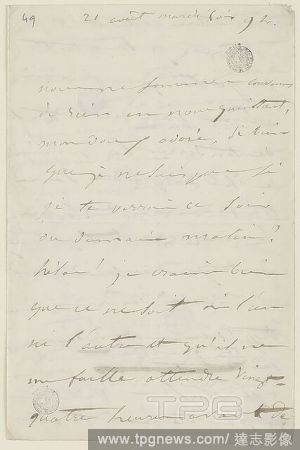 49
21 août mardi soir 9 h.
nous ne sommes convenus
de rien en nous quittant,
mon doux adoré, si bien
que je ne sais pas si
je te verrai ce soir
ou demain matin !
hélas ! je crains bien
que ce ne soit ni l'un
ni l'autre et qu'il ne
me faille attendre vingt-
quatre heures
TPG
www.tpgnews.com/達志影像